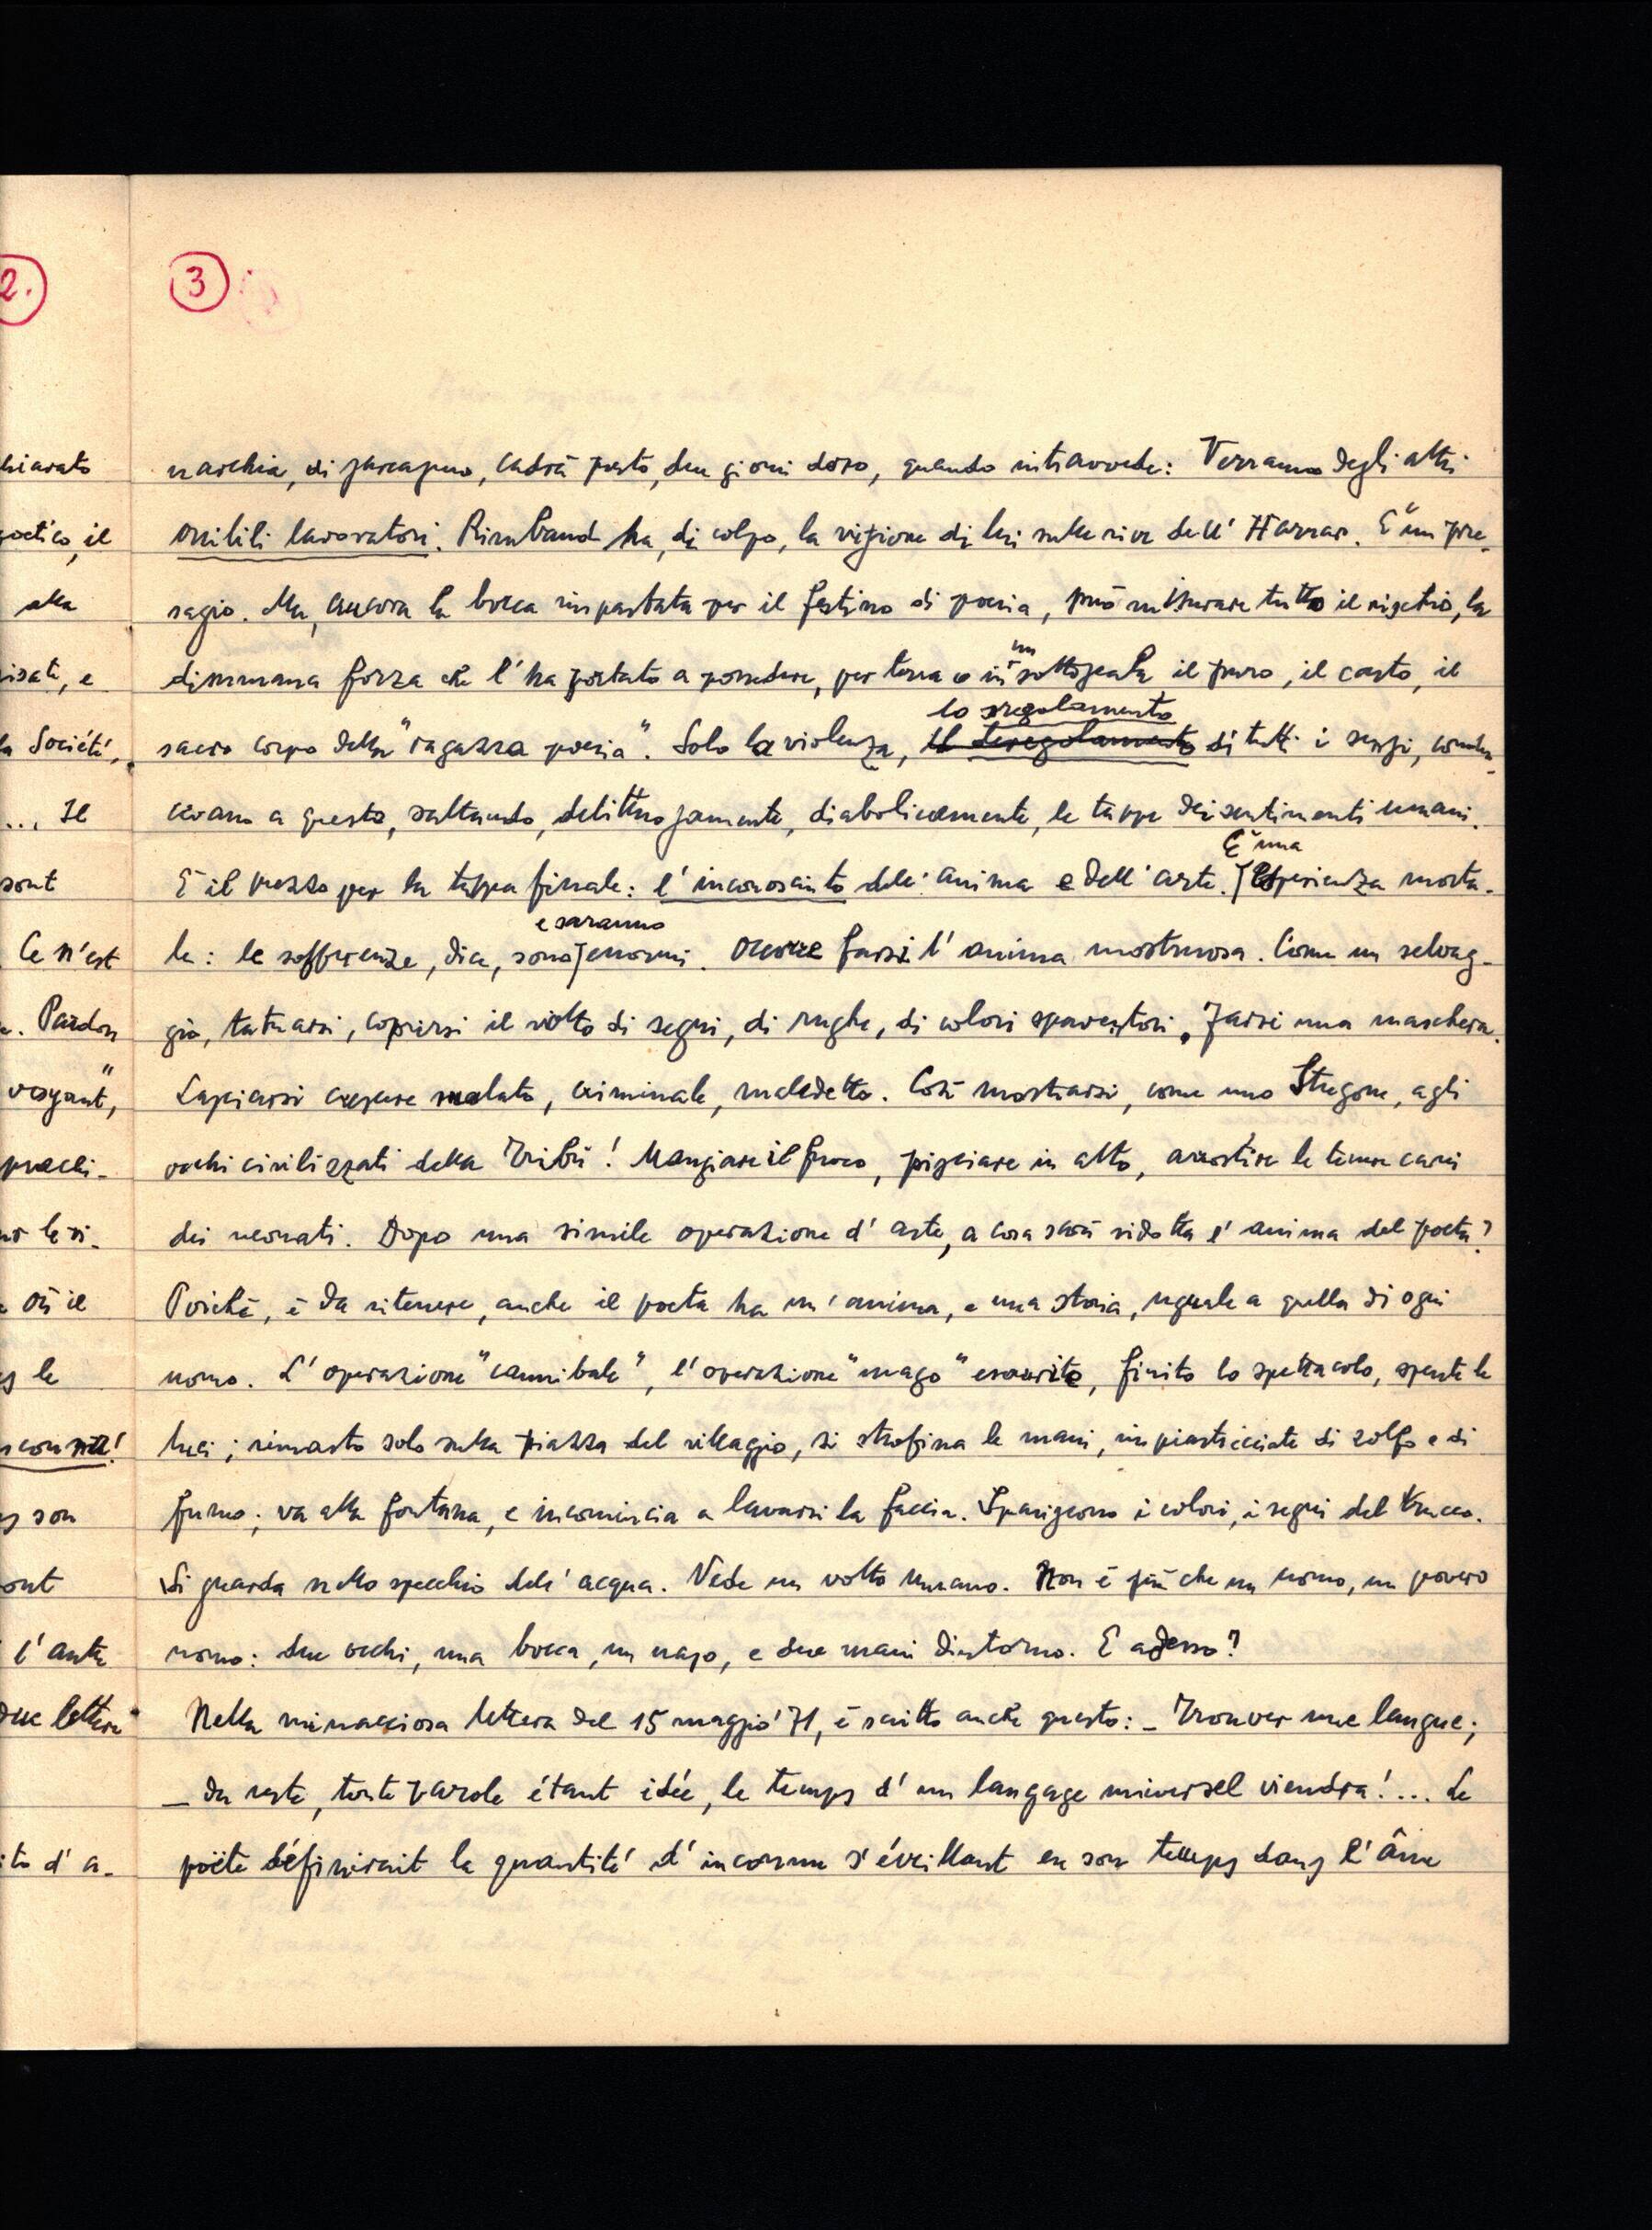 2.
3
hiarato
poetico, il
alla
isati, e
la Société,
... Il
sont
Ce n'est
Pardon
voyant",
le
son
ont
l'ante
due lettere
ito d'a-
narchia, di cadrà presto, due giorni dopo, quando intravvede: Verranno degli altri
orribili lavoratori. Rimbaud ha, di colpo, la visione di lui sulle rive dell' Harrar. E' un pre-
sagio. Ma, ancora la bocca impastata per il festino di poesia, può misurare tutto il rischio, la
disumana forza che l'ha portato a possedere, per terra o in un sottoscala il puro, il casto, il
lo sregolamento
sacro corpo della "ragazza poesia". Solo la violenza, il deregolamento di tutti i sensi, condu-
cevano a questo, saltando, delittuosamente, diabolicamente, le tappe dei sentimenti umani.
E' una
E il prezzo per la tappa finale: l'inconosciuto dell' anima e dell' arte. Esperienza morta-
e saranno
le: le sofferenze, dice, sono enormi. Occorre farsi l' anima mostruosa. Come un selvag-
gio, tatuarsi, coprirsi il volto di segni, di rughe, di colori spaventosi, farsi una maschera.
Lasciarsi crescere malato, criminale, maledetto. Così mostrarsi, come uno Stregone, agli
occhi civilizzati della Tribù! Mangiare il fuoco, pisciare in alto, arrostire le tenere carni
dei neonati. Dopo una simile operazione d' arte, a cosa sarà ridotta l' anima del poeta?
Poichè, è da ritenere, anche il poeta ha un' anima, e una storia, uguale a quella di ogni
uomo. L' operazione "cannibale", l' operazione "mago" esaurite, finito lo spettacolo, spente le
luci; rimasto solo sulla piazza del villaggio, si strofina le mani, impiastricciate di zolfo e di
fumo; va alla fontana, e incomincia a lavarsi la faccia. Spariscono i colori, i segni del trucco.
Si guarda nello specchio dell' acqua. Vede un volto umano. Non è più che un uomo, un povero
uomo: due occhi, una bocca, un naso, e due mani dintorno. E adesso?
Nella minacciosa lettera del 15 maggio '71, è scritto anche questo: - Trouver une langue;
- Du reste, toute parole étant idée, le temps d' un langage universel viendra! ... Le
poëte définirait la quantité d' inconnu s'éveillant en son temps dans l' âme